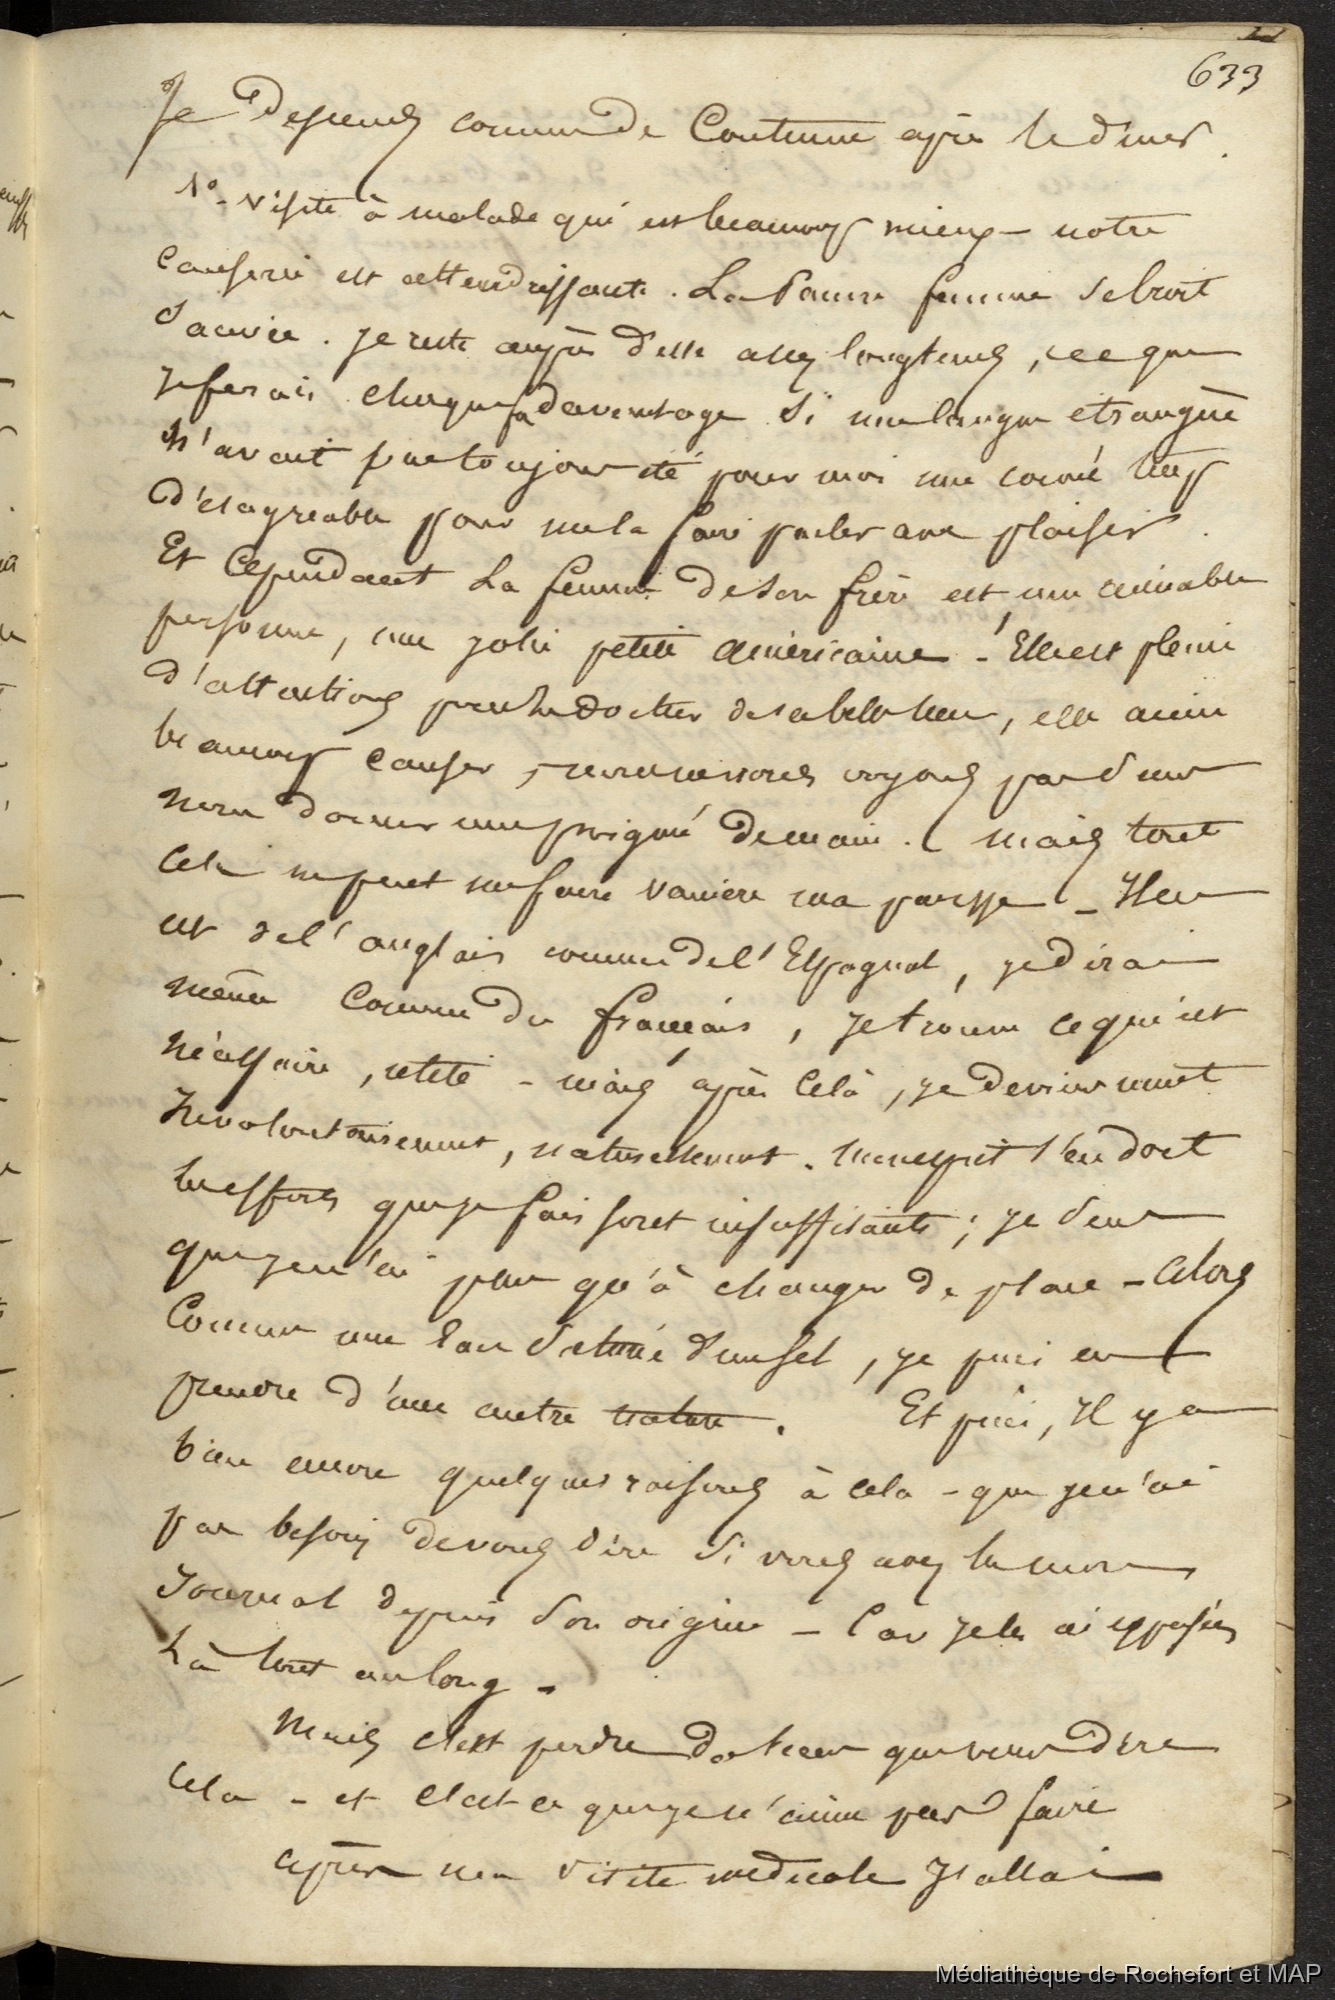 633
Je descends comme de Coutume après le diner.
1º - visite à malade qui est beaucoup mieux - notre
Causerie est attendrissante. La Pauvre femme se croit
Sauvée. je reste auprès d'elle assez longtems, ce que
je ferais chaque fs davantage si une langue étrangère
n'avait pas toujours été pour moi une corvée trop
désagréable pour me la faire parler avec plaisir.
Et Cependant La femme de son frère est, une aimable
personne, une jolie petite américaine - Elle est pleine
d'attentions pour le docteur de sa belle sœur, elle aime
beaucoup causer,
nom donner une poignée de main. Mais tout
Cela ne peut me faire vaincre ma paresse - Il en
est de l'anglais comme de l'Espagnol, je dirai
même Comme du français, je trouve ce qui est
nécessaire, utile - mais après Celà, je deviens muet
Involontairement, naturellement. mon esprit s'endort
les efforts que je fais sont insuffisants; je sens
que je n'ai plus qu'à changer de place - Alors
Comme une Eau saturée d'un sel, je puis en
prendre d'une autre nature. Et puis, Il y a
bien encore quelques raisons à cela - que je n'ai
pas besoin de vous dire si vous avez lu mon
Journal depuis son origine - Car je les ai exposées
Là tout au long -
Mais c'est perdre que vous dire
Cela - et c'est ce que je n'aime pas faire
après ma visite medicale J'allai
Médiathèque de Rochefort et MAP